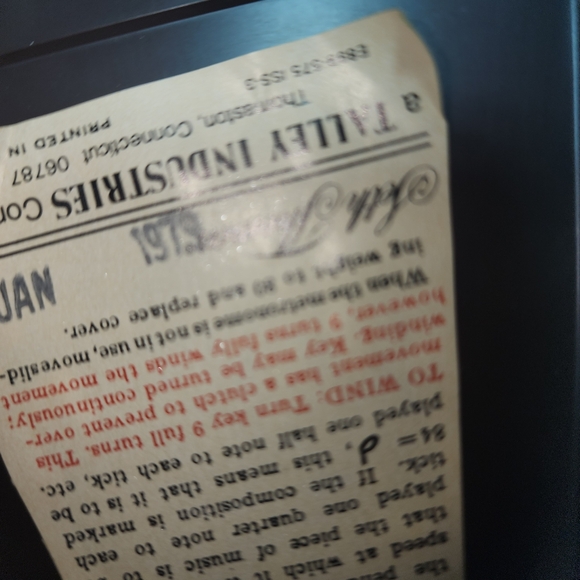 the
speed at which it
that the piece of music
played one quarter note to each
tick. If the composition is marked
84 = , this means that it is to be
played one half note to each tick, etc.
TO WIND: Turn key 9 full turns. This
movement has a clutch to prevent over-
winding. Key may be turned continuously;
however, 9 turns fully winds the movement
When the metronome is not in use, move slid-
ing weight to 80 and replace cover.
JAN 1979
Seth Thomas
a TALLEY INDUSTRIES
Thomaston, Connecticut 06787
PRINTED IN